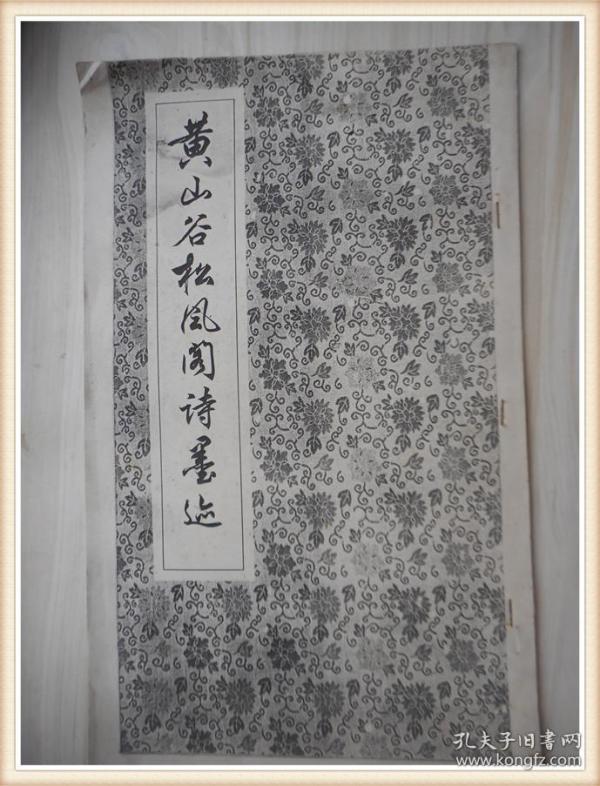 黄山谷松风阁诗墨迹
孔夫子旧書网
www.kongfz.com